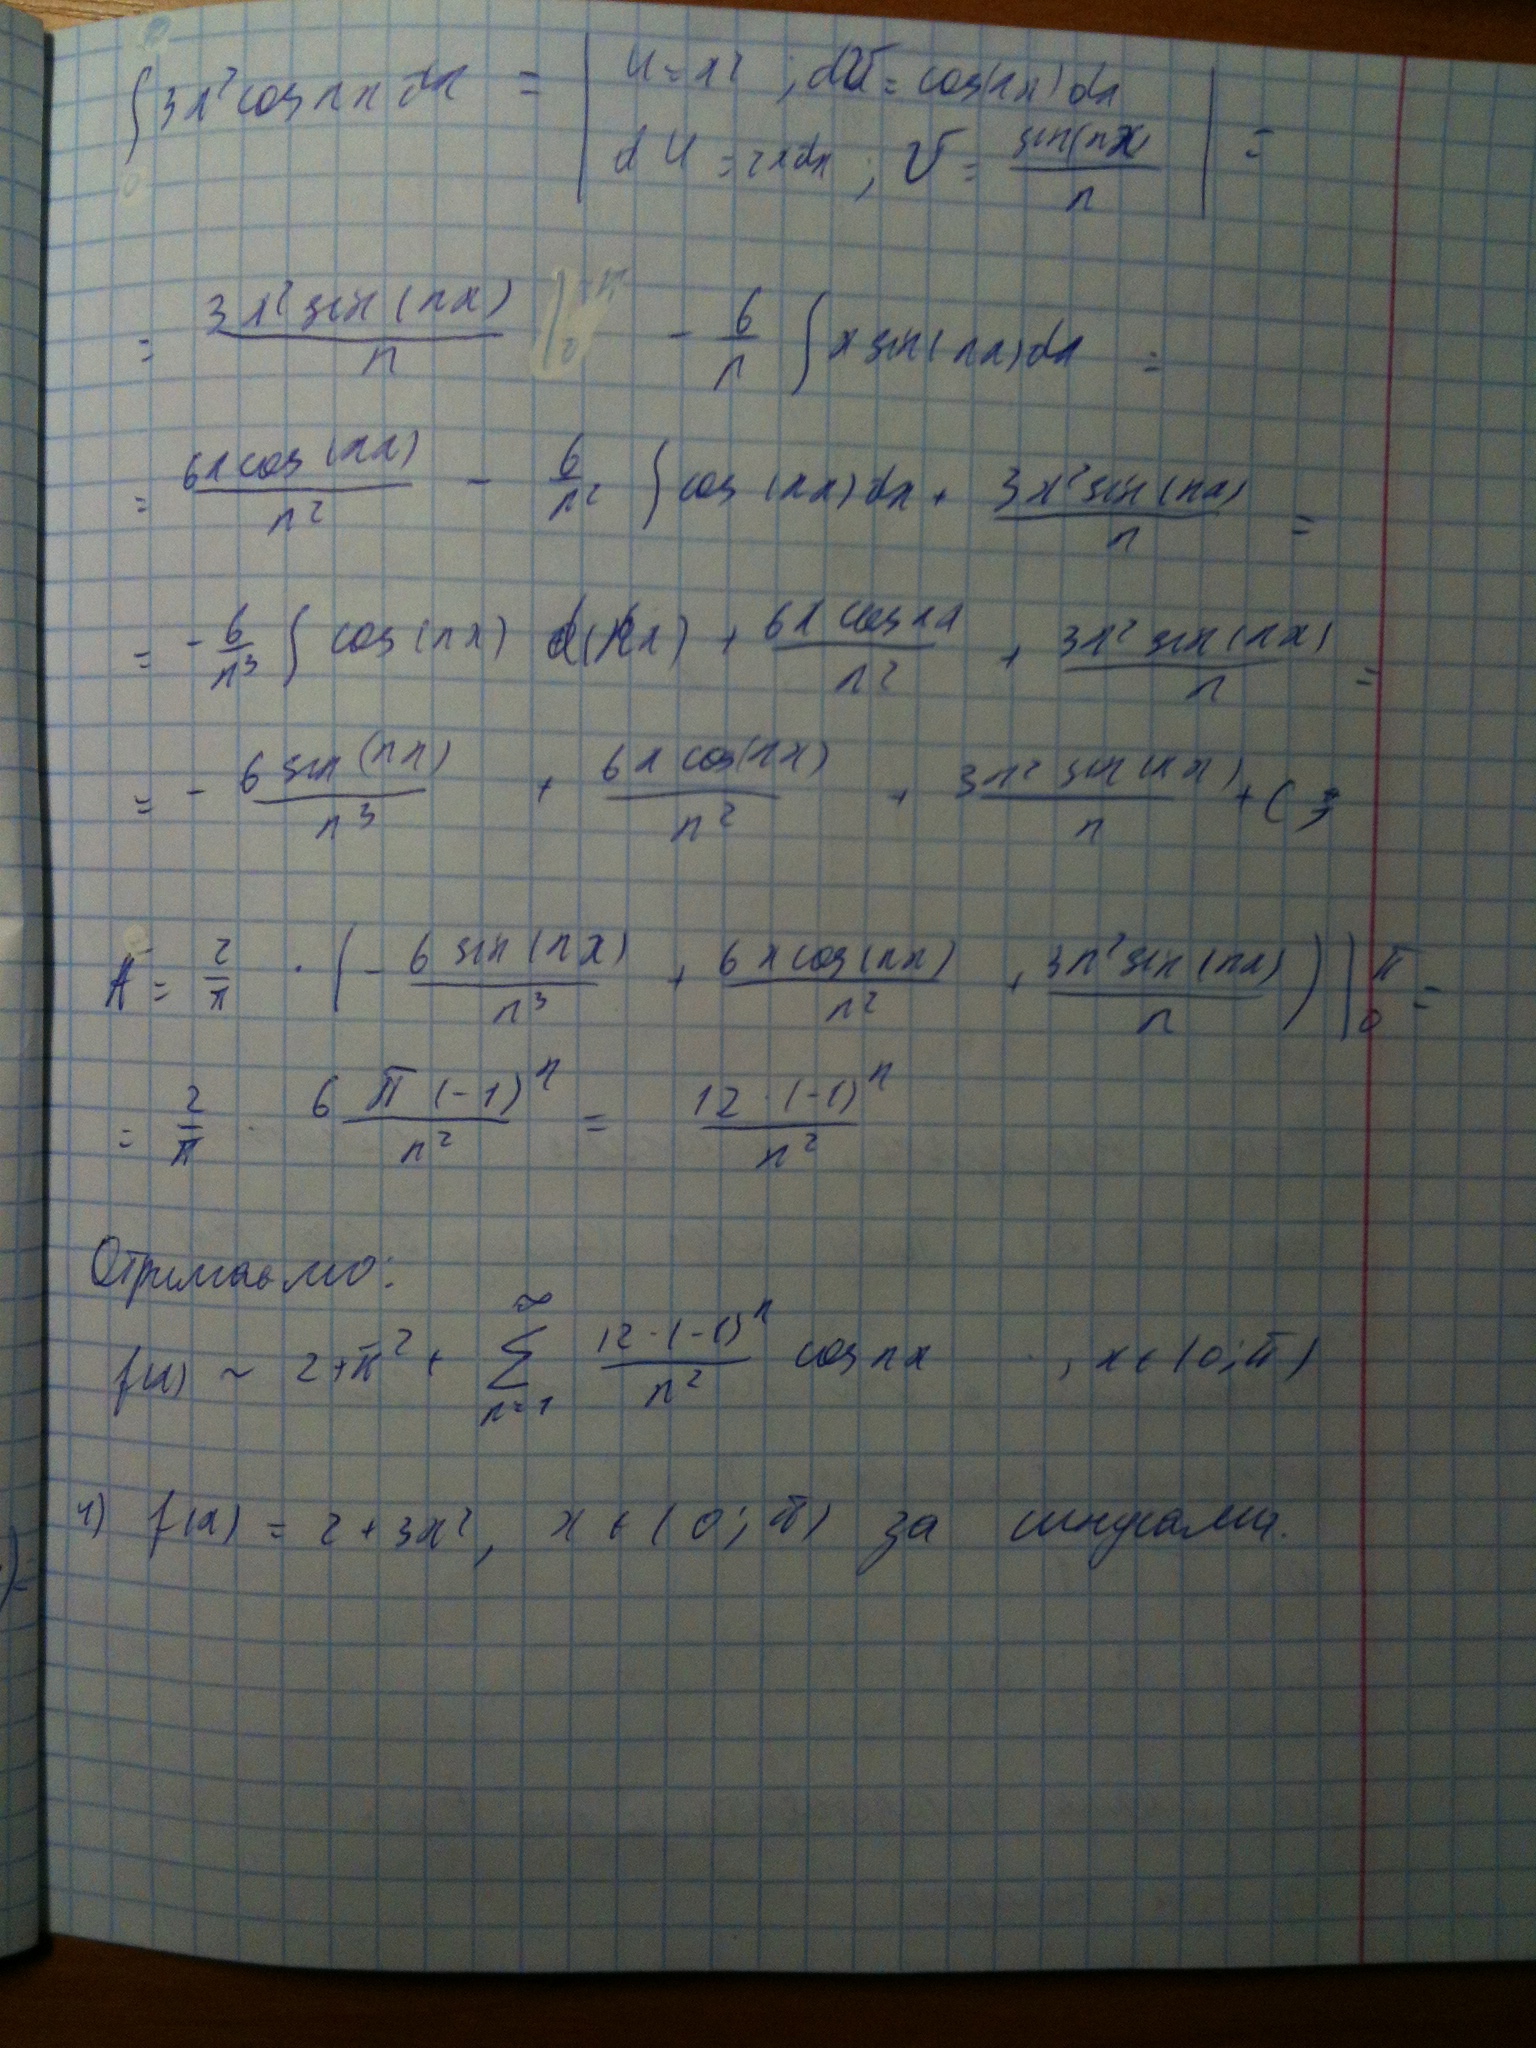 ∫ 3x² cos nx dx = | u = x² ; dv = cos(nx) dx
du = 2xdx ; v = sin(nx) / n | =
= 3x² sin(nx) / n - 6/n ∫ x sin(nx) dx =
= 6x cos(nx) / n² - 6/n² ∫ cos(nx) dx + 3x² sin(nx) / n =
= - 6/n³ ∫ cos(nx) d(nx) + 6x cos nx / n² + 3x² sin(nx) / n =
= - 6 sin(nx) / n³ + 6x cos(nx) / n² + 3x² sin(nx) / n + C;
= 2/π · ( - 6 sin(nx) / n³ + 6x cos(nx) / n² + 3x² sin(nx) / n ) |₀^π =
= 2/π · 6π(-1)ⁿ / n² = 12·(-1)ⁿ / n²
Отримаємо:
f(x) ~ 2+π² + ∑ₙ₌₁^∞ 12·(-1)ⁿ / n² cos nx , x ∈ (0; π)
4) f(x) = 2 + 3x², x ∈ (0; π) за синусами.